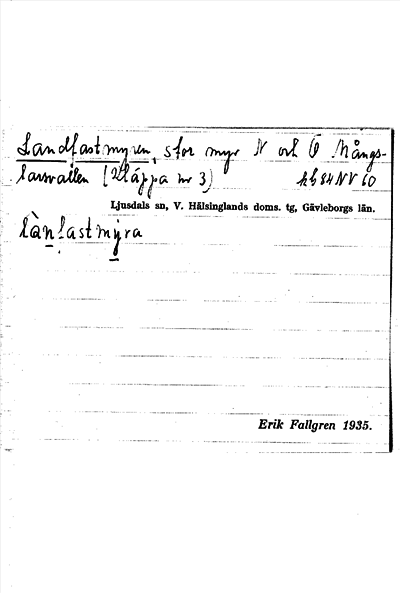 Landfastmyren, stor myr N och Ö Mångs-
larsvallen (Kläppa nr 3) kb 84 NV 60
Ljusdals sn, V. Hälsinglands doms. tg, Gävleborgs län.
làṇfastmy̲ra
Erik Fallgren 1935.